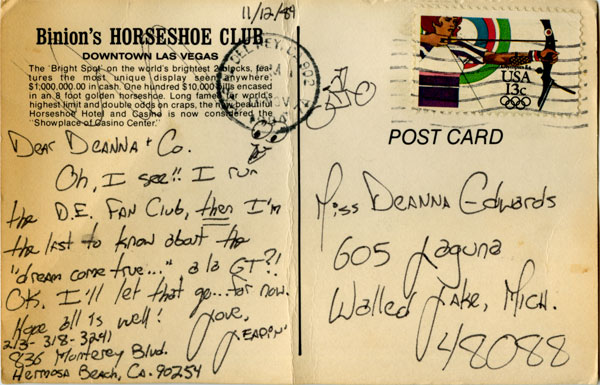 11/12/84
Binion's HORSESHOE CLUB
DOWNTOWN LAS VEGAS
The 'Bright Spot' on the world's brightest 2 blocks, fea-
tures the most unique display seen anywhere:
$1,000,000.00 in cash. One hundred $10,000 bills encased
in an 8 foot golden horseshoe. Long famed for world's
highest limit and double odds on craps, the new beautiful
Horseshoe Hotel and Casino is now considered the
"Showplace of Casino Center."
Dear Deanna + Co.
Oh, I see!! I run
the D.E. Fan Club, then I'm
the last to know about the
"dream come true..." a la GT?!
OK. I'll let that go...for now.
Hope all is well! Love,
213-318-3241
836 Monterey Blvd.
Hermosa Beach, CA. 90254
DEL REY, CA 902
USA
13c
POST CARD
Miss Deanna Edwards
605 Laguna
Walled Lake, Mich.
48088